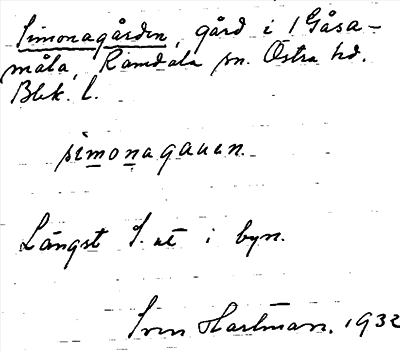 Simonagården, gård i 1 Gåsa-
måla, Ramdala sn. Östra hd.
Blek. l.
simonagauen.
Längst S. ut i byn.
Sven Hartman. 1932